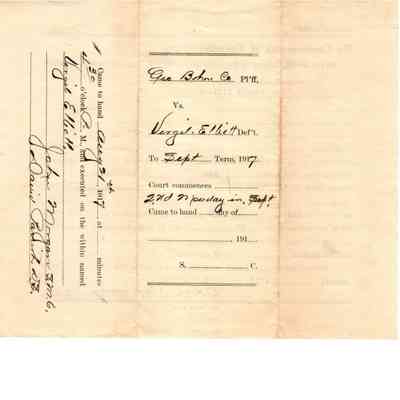 Geo Bohn Co Pl'ff,
Vs.
Virgil Elliott Def't.
To Sept Term, 1917
Court commences
2nd Monday in Sept
Came to hand day of
191
S. C.
Came to hand Aug 21st 1917 at minutes
o'clock P. M., and executed on the within named
Virgil Elliott
John Morgan
By David